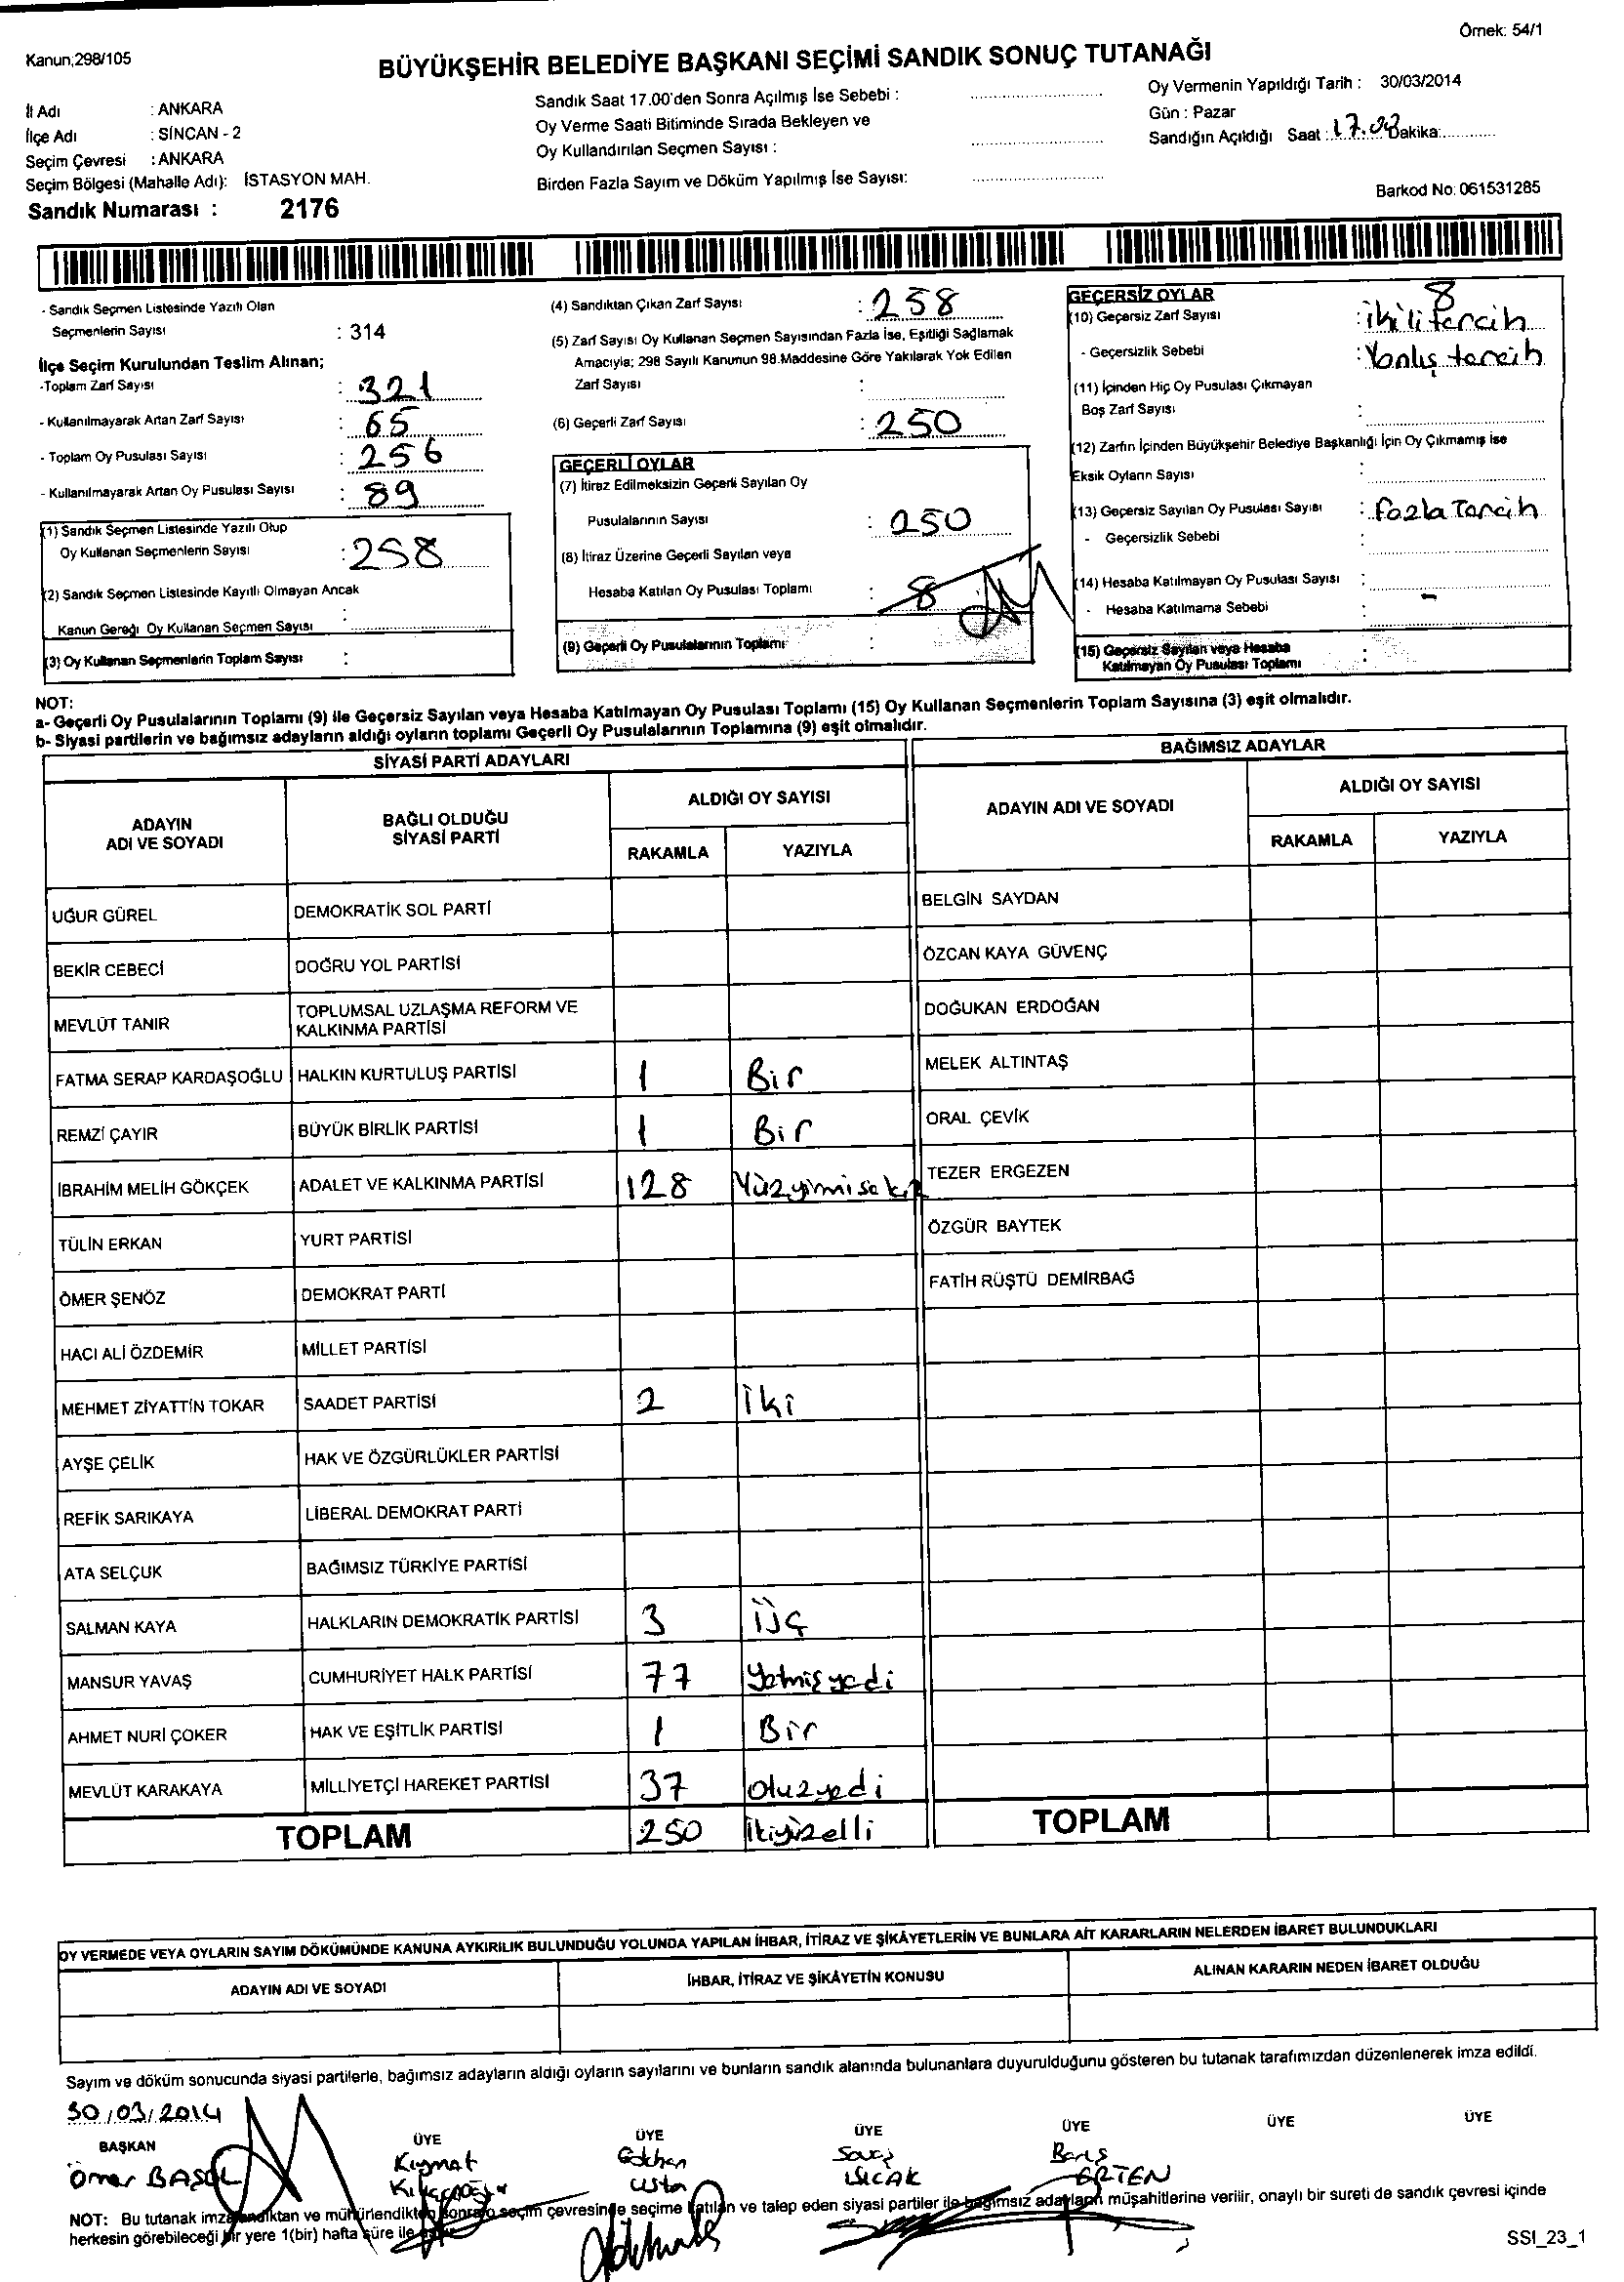 Örnek: 54/1
Kanun;298/105
BÜYÜKŞEHİR BELEDİYE BAŞKANI SEÇİMİ SANDIK SONUÇ TUTANAĞI
İl Adı : ANKARA
İlçe Adı : SİNCAN - 2
Seçim Çevresi : ANKARA
Seçim Bölgesi (Mahalle Adı): İSTASYON MAH.
Sandık Numarası : 2176
Sandık Saat 17.00'den Sonra Açılmış İse Sebebi :
Oy Verme Saati Bitiminde Sırada Bekleyen ve
Oy Kullandırılan Seçmen Sayısı :
Birden Fazla Sayım ve Döküm Yapılmış İse Sayısı:
Oy Vermenin Yapıldığı Tarih : 30/03/2014
Gün : Pazar
Sandığın Açıldığı Saat : 17.00 Dakika:
Barkod No: 061531285
- Sandık Seçmen Listesinde Yazılı Olan
Seçmenlerin Sayısı : 314
İlçe Seçim Kurulundan Teslim Alınan;
-Toplam Zarf Sayısı : 321
- Kullanılmayarak Artan Zarf Sayısı : 65
- Toplam Oy Pusulası Sayısı : 256
- Kullanılmayarak Artan Oy Pusulası Sayısı : 89
(1) Sandık Seçmen Listesinde Yazılı Olup
Oy Kullanan Seçmenlerin Sayısı : 258
(2) Sandık Seçmen Listesinde Kayıtlı Olmayan Ancak
Kanun Gereği Oy Kullanan Seçmen Sayısı :
(3) Oy Kullanan Seçmenlerin Toplam Sayısı :
(4) Sandıktan Çıkan Zarf Sayısı : 258
(5) Zarf Sayısı Oy Kullanan Seçmen Sayısından Fazla İse, Eşitliği Sağlamak
Amacıyla; 298 Sayılı Kanunun 98.Maddesine Göre Yakılarak Yok Edilen
Zarf Sayısı :
(6) Geçerli Zarf Sayısı : 250
GEÇERLİ OYLAR
(7) İtiraz Edilmeksizin Geçerli Sayılan Oy
Pusulalarının Sayısı : 250
(8) İtiraz Üzerine Geçerli Sayılan veya
Hesaba Katılan Oy Pusulası Toplamı : 8
(9) Geçerli Oy Pusulalarının Toplamı :
GEÇERSİZ OYLAR
(10) Geçersiz Zarf Sayısı : 8
ikili tercih
- Geçersizlik Sebebi : Yanlış tercih
(11) İçinden Hiç Oy Pusulası Çıkmayan
Boş Zarf Sayısı :
(12) Zarfın İçinden Büyükşehir Belediye Başkanlığı İçin Oy Çıkmamış İse
Eksik Oyların Sayısı :
(13) Geçersiz Sayılan Oy Pusulası Sayısı : fazla Tercih
- Geçersizlik Sebebi :
(14) Hesaba Katılmayan Oy Pusulası Sayısı :
- Hesaba Katılmama Sebebi : -
(15) Geçersiz Sayılan veya Hesaba
Katılmayan Oy Pusulası Toplamı :
NOT:
a- Geçerli Oy Pusulalarının Toplamı (9) ile Geçersiz Sayılan veya Hesaba Katılmayan Oy Pusulası Toplamı (15) Oy Kullanan Seçmenlerin Toplam Sayısına (3) eşit olmalıdır.
b- Siyasi partilerin ve bağımsız adayların aldığı oyların toplamı Geçerli Oy Pusulalarının Toplamına (9) eşit olmalıdır.
SİYASİ PARTİ ADAYLARI
ADAYIN
ADI VE SOYADI
BAĞLI OLDUĞU
SİYASİ PARTİ
ALDIĞI OY SAYISI
RAKAMLA YAZIYLA
UĞUR GÜREL DEMOKRATİK SOL PARTİ
BEKİR CEBECİ DOĞRU YOL PARTİSİ
MEVLÜT TANIR TOPLUMSAL UZLAŞMA REFORM VE
KALKINMA PARTİSİ
FATMA SERAP KARDAŞOĞLU HALKIN KURTULUŞ PARTİSİ 1 Bir
REMZİ ÇAYIR BÜYÜK BİRLİK PARTİSİ 1 Bir
İBRAHİM MELİH GÖKÇEK ADALET VE KALKINMA PARTİSİ 128 Yüzyimisekiz
TÜLİN ERKAN YURT PARTİSİ
ÖMER ŞENÖZ DEMOKRAT PARTİ
HACI ALİ ÖZDEMİR MİLLET PARTİSİ
MEHMET ZİYATTİN TOKAR SAADET PARTİSİ 2 İki
AYŞE ÇELİK HAK VE ÖZGÜRLÜKLER PARTİSİ
REFİK SARIKAYA LİBERAL DEMOKRAT PARTİ
ATA SELÇUK BAĞIMSIZ TÜRKİYE PARTİSİ
SALMAN KAYA HALKLARIN DEMOKRATİK PARTİSİ 3 Üç
MANSUR YAVAŞ CUMHURİYET HALK PARTİSİ 77 Yetmişyedi
AHMET NURİ ÇOKER HAK VE EŞİTLİK PARTİSİ 1 Bir
MEVLÜT KARAKAYA MİLLİYETÇİ HAREKET PARTİSİ 37 Otuzyedi
TOPLAM 250 İkiyüzelli
BAĞIMSIZ ADAYLAR
ADAYIN ADI VE SOYADI
ALDIĞI OY SAYISI
RAKAMLA YAZIYLA
BELGİN SAYDAN
ÖZCAN KAYA GÜVENÇ
DOĞUKAN ERDOĞAN
MELEK ALTINTAŞ
ORAL ÇEVİK
TEZER ERGEZEN
ÖZGÜR BAYTEK
FATİH RÜŞTÜ DEMİRBAĞ
TOPLAM
OY VERMEDE VEYA OYLARIN SAYIM DÖKÜMÜNDE KANUNA AYKIRILIK BULUNDUĞU YOLUNDA YAPILAN İHBAR, İTİRAZ VE ŞİKÂYETLERİN VE BUNLARA AİT KARARLARIN NELERDEN İBARET BULUNDUKLARI
ADAYIN ADI VE SOYADI İHBAR, İTİRAZ VE ŞİKÂYETİN KONUSU ALINAN KARARIN NEDEN İBARET OLDUĞU
Sayım ve döküm sonucunda siyasi partilerle, bağımsız adayların aldığı oyların sayılarını ve bunların sandık alanında bulunanlara duyurulduğunu gösteren bu tutanak tarafımızdan düzenlenerek imza edildi.
30/03/2014
BAŞKAN ÜYE ÜYE ÜYE ÜYE ÜYE ÜYE
Ömer BAŞOL Kıymet Gökhan Savaş Barış
Usta ISICAK ERTEN
NOT: Bu tutanak imzalandıktan ve mühürlendikten sonra o seçim çevresinde seçime katılan ve talep eden siyasi partiler ile bağımsız adayların müşahitlerine verilir, onaylı bir sureti de sandık çevresi içinde
herkesin görebileceği bir yere 1(bir) hafta süre ile asılır.
SSI_23_1